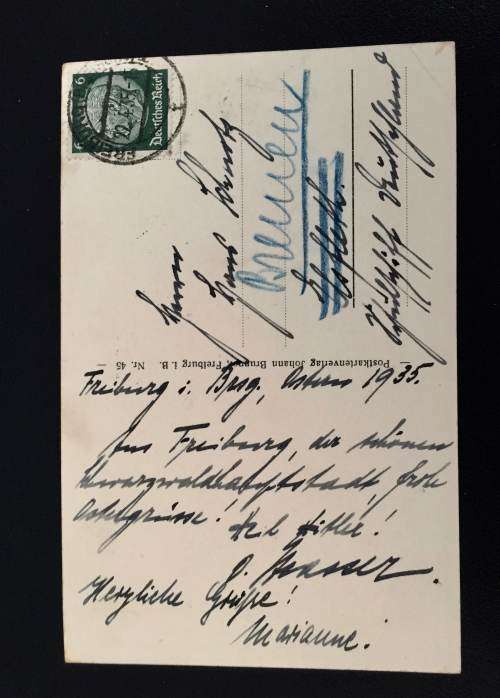 6 6
Deutsches Reich
Herrn
Hans
Bremen
Schulschiff Deutschland
Postkartenverlag Johann Brugger, Freiburg i. B. Nr. 45
Freiburg i. Brsg, Ostern 1935.
Aus Freiburg, der schönen
Schwarzwaldhauptstadt, frohe
Ostergrüsse!
Heil Hitler!
Herzliche Grüße!
Marianne.